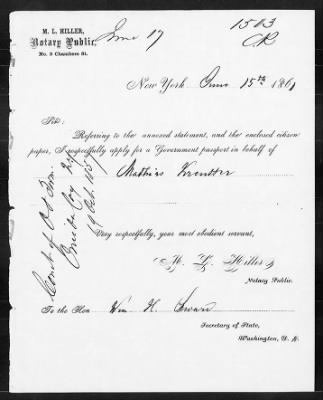 M. L. HILLER,
Notary Public,
No. 3 Chambers St.
June 17
1503
CR
New York June 15th 1861
Sir:
Referring to the annexed statement, and the enclosed citizen
paper, I respectfully apply for a Government passport in behalf of
Mathias
Very respectfully, your most obedient servant,
M. L. Hiller
Notary Public.
To the Hon Wm H. Seward
Secretary of State,
Washington, D. C.
Court of
Oneida Co NY
Oct 1857